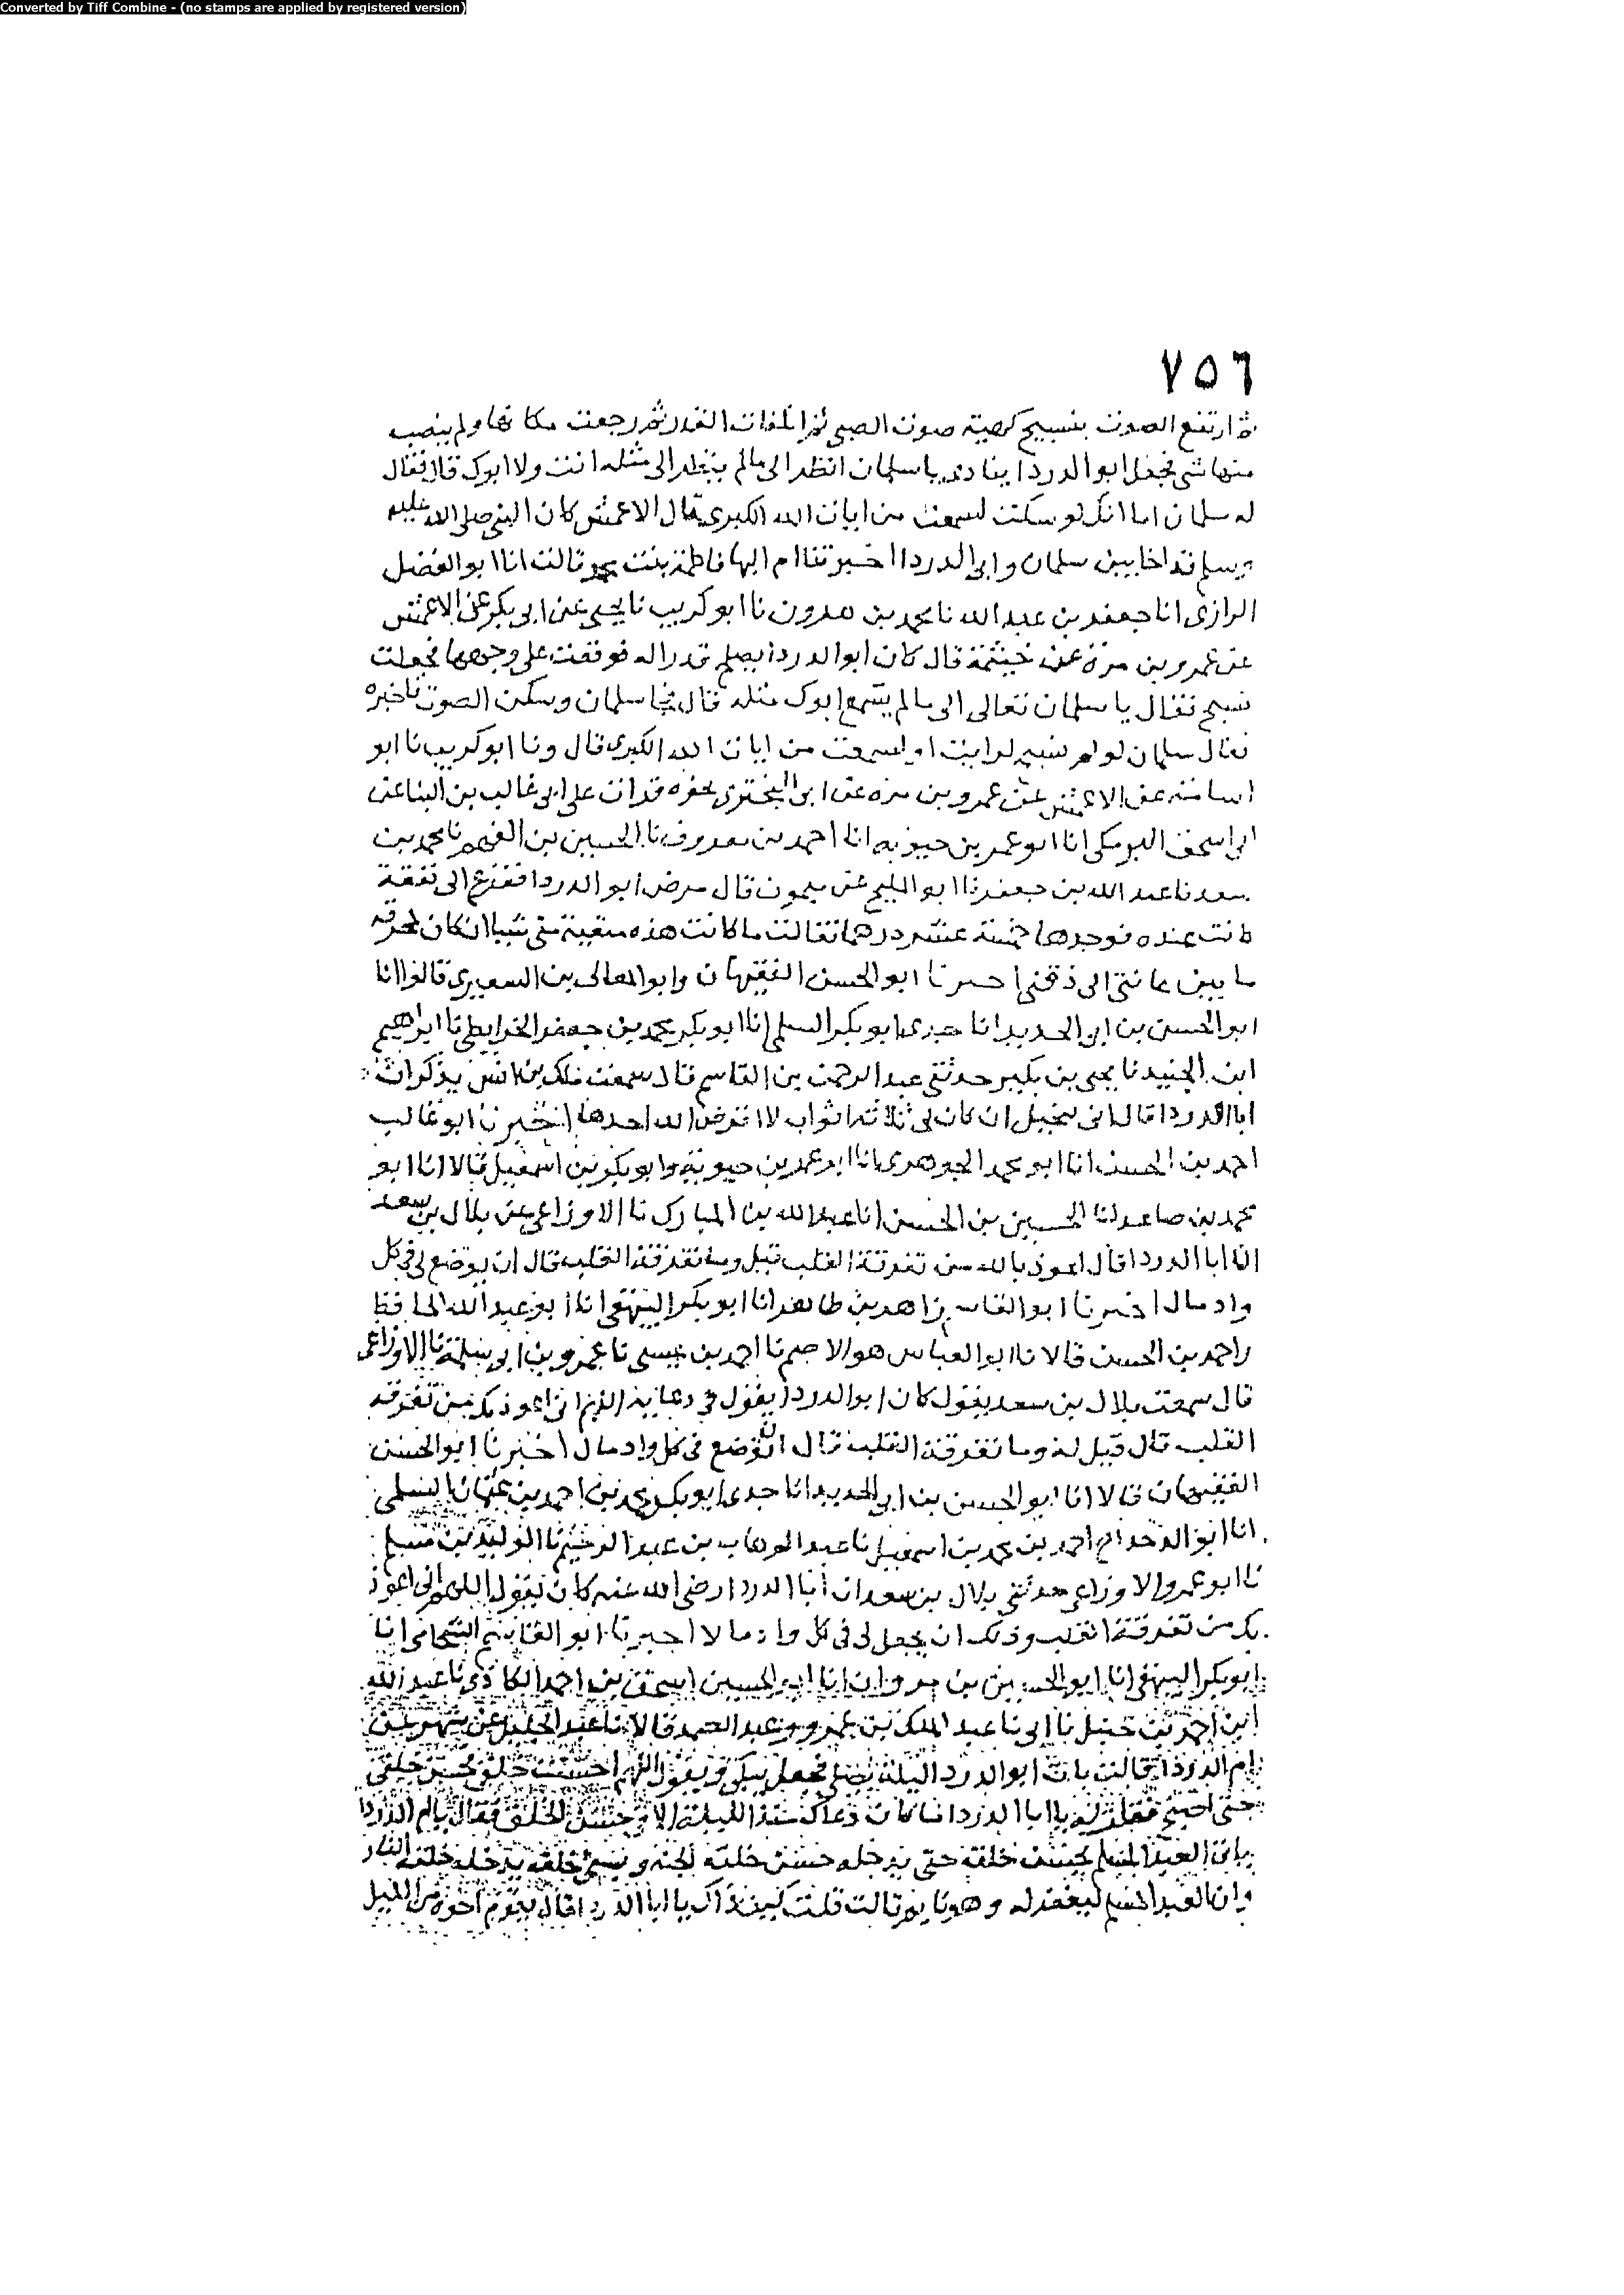 Converted by Tiff Combine - (no stamps are applied by registered version)
٧٥٦
ثم ارتفع الصوت بتسبيح كهيئة صوت الصبي ثم انكفات القدر ثم رجعت مكانها ولم ينصب
منها شي فجعل ابو الدردا ينادي يا سلمان انظر الى ما لم ينظر الى مثله انت ولا ابوك قال فقال
له سلمان اما انك لو سكت لسمعت من ايات الله الكبرى قال الاعمش كان النبي صلى الله عليه
وسلم قد اخا بين سلمان وابي الدردا اخبرتنا ام البها فاطمة بنت محمد قالت انا ابو الفضل
الرازي انا جعفر بن عبد الله نا محمد بن هرون نا ابو كريب نا يحيى عن ابي بكر عن الاعمش
عن عمرو بن مرة عن خيثمة قال كان ابو الدردا يصلح قدرا له فوقعت على وجهها فجعلت
تسبح فقال يا سلمان تعالى الى ما لم يسمع ابوك مثله قال فجا سلمان وسكن الصوت فاخبره
فقال سلمان لو لم لرايت او لسمعت من ايات الله الكبرى قال ونا ابو كريب نا ابو
اسامة عن الاعمش عن عمرو بن مرة عن ابي البختري بنحوه قرات على ابي غالب بن البنا عن
ابي اسحق البرمكي انا ابو عمر بن حيويه انا احمد بن معروف نا الحسين بن الفهم نا محمد بن
سعد نا عبد الله بن جعفر نا ابو المليح عن ميمون قال مرض ابو الدردا ففزع الى نفقة
كانت عنده فوجدها خمسة عشر درهما فقالت ما كانت هذه مبقية مني شيا ان كان لمحرقه
ما بين عانتي الى ذقني اخبرنا ابو الحسن الفقيهان وابو المعالي بن الشعيري قالوا انا
ابو الحسن بن ابي الحديد انا جدي ابو بكر السلمي انا ابو بكر محمد بن جعفر الخرايطي نا ابراهيم
ابن الجنيد نا يحيى بن بكير حدثني عبد الرحمن بن القاسم قال سمعت ملك بن انس يذكر ان
ابا الدردا قال اني لبخيل ان كان لي ثلاثه اثواب لا اقرض الله احدها اخبرنا ابو غالب
احمد بن الحسن انا ابو محمد الجوهري انا ابو عمر بن حيوية وابو بكر بن اسمعيل قالا انا ابو
محمد بن صاعد نا الحسين بن الحسن انا عبد الله بن المبارك نا الاوزاعي عن بلال بن سعد
ان ابا الدردا قال اعوذ بالله من تفرقة القلب قيل وما تفرقة القلب قال ان يوضع لي في كل
واد مال اخبرنا ابو القاسم زاهر بن طاهر انا ابو بكر البيهقي انا ابو عبد الله الحافظ
واحمد بن الحسن قالا نا ابو العباس هو الاصم نا احمد بن عيسى نا عمرو بن ابي سلمة نا الاوزاعي
قال سمعت بلال بن سعد يقول كان ابو الدردا يقول في دعايه اللهم اني اعوذ بك من تفرقة
القلب قال قيل له وما تفرقة القلب قال ان يوضع في كل واد مال اخبرنا ابو الحسن
الفقيهان قالا انا ابو الحسن بن ابي الحديد انا جدي ابو بكر محمد بن احمد بن عثمان السلمي
انا ابو الدحداح احمد بن محمد بن اسمعيل نا عبد الوهاب بن عبد الرحيم نا الوليد بن مسلم
نا ابو عمرو الاوزاعي حدثني بلال بن سعد ان ابا الدردا رضي الله عنه كان يقول اللهم اني اعوذ
بك من تفرقة القلب وذلك ان يجعل لي في كل واد مالا اخبرنا ابو القاسم الشحامي انا
ابو بكر البيهقي انا ابو الحسين بن انا ابو الحسين اسحق بن احمد الكاذي نا عبد الله
ابن احمد بن حنبل نا ابي نا عبد الملك بن عمرو وعبد الصمد قالا نا عبد الجليل عن شهر عن
ام الدردا قالت بات ابو الدردا ليلة يصلي فجعل يبكي ويقول اللهم احسنت خلقي فحسن خلقي
حتى اصبح فقلت له يا ابا الدردا ما كان دعاك منذ الليلة الا في حسن الخلق فقال يا ام الدردا
ان العبد المسلم يحسن خلقه حتى يدخله حسن خلقه الجنة ويسيئ خلقه يدخله خلقه النار
وان العبد المسلم ليغفر له وهو نايم قالت قلت كيف ذاك يا ابا الدردا قال يقوم اخوه من الليل